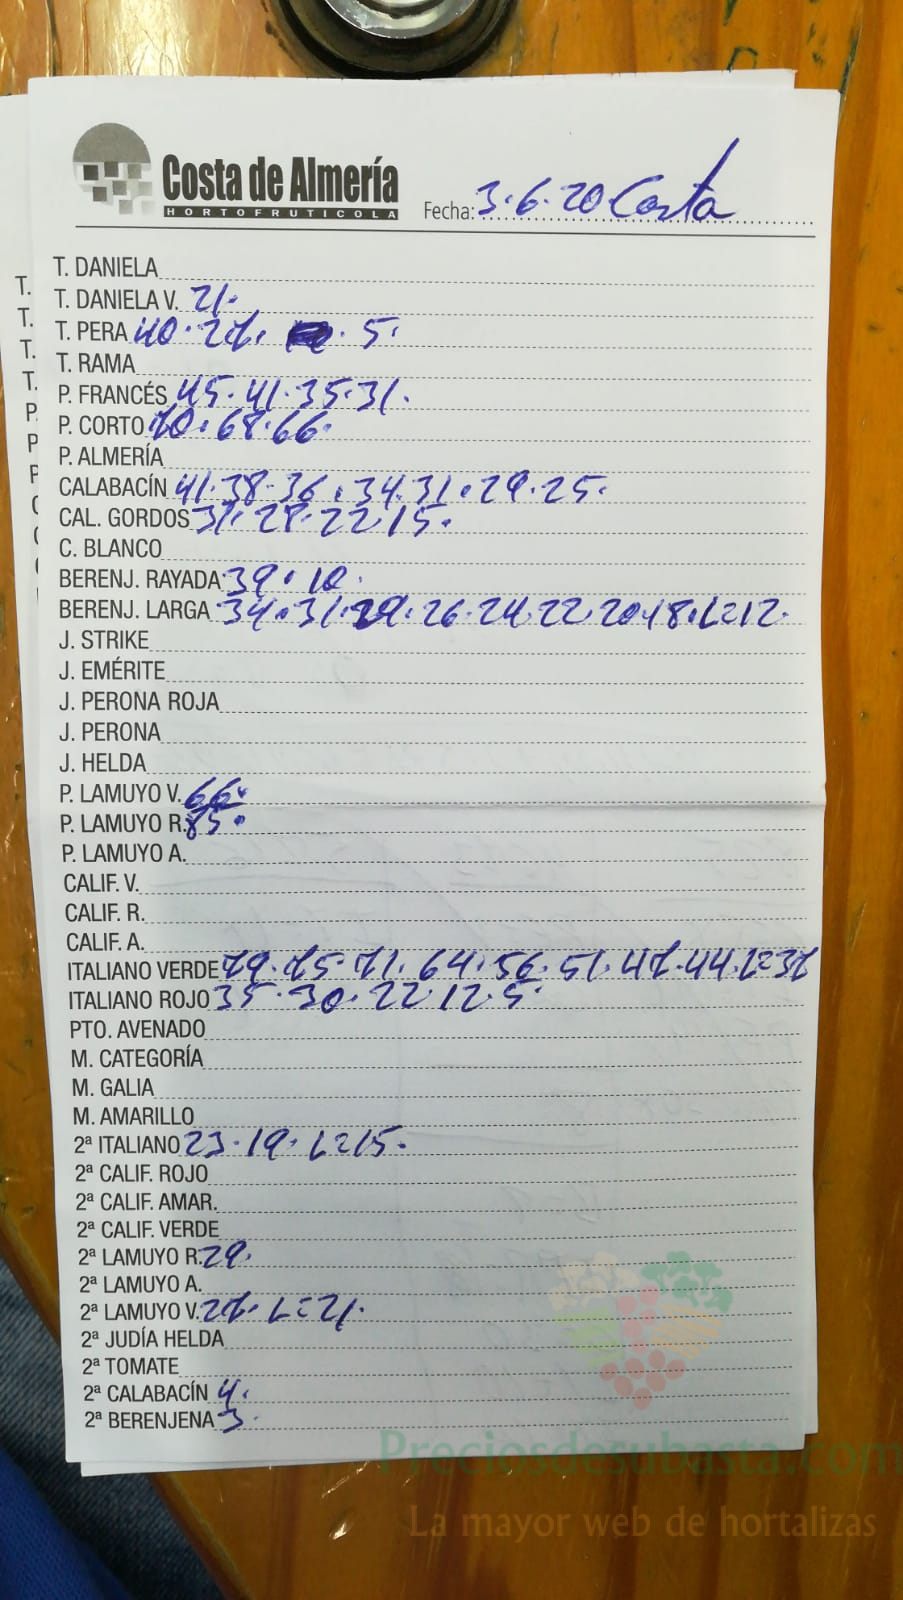 Costa de Almería
HORTOFRUTICOLA
Fecha: 3.6.20 Costa
T. DANIELA
T. DANIELA V. 21.
T. PERA 40. 27. 5.
T. RAMA
P. FRANCÉS 45. 41. 35. 31.
P. CORTO 70. 68. 66.
P. ALMERÍA
CALABACÍN 41. 38. 36. 34. 31. 29. 25.
CAL. GORDOS 31. 28. 22. 15.
C. BLANCO
BERENJ. RAYADA 39. 10.
BERENJ. LARGA 34. 31. 29. 26. 24. 22. 20. 18. L=12.
J. STRIKE
J. EMÉRITE
J. PERONA ROJA
J. PERONA
J. HELDA
P. LAMUYO V. 66.
P. LAMUYO R. 85.
P. LAMUYO A.
CALIF. V.
CALIF. R.
CALIF. A.
ITALIANO VERDE 79. 75. 71. 64. 56. 51. 47. 44. L=37
ITALIANO ROJO 35. 30. 22. 12. 5.
PTO. AVENADO
M. CATEGORÍA
M. GALIA
M. AMARILLO
2ª ITALIANO 23. 19. L=15.
2ª CALIF. ROJO
2ª CALIF. AMAR.
2ª CALIF. VERDE
2ª LAMUYO R. 29.
2ª LAMUYO A.
2ª LAMUYO V. 27. L=21.
2ª JUDÍA HELDA
2ª TOMATE
2ª CALABACÍN 4.
2ª BERENJENA 3.
Preciosdesubasta.com
La mayor web de hortalizas